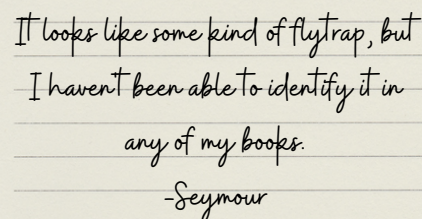 It looks like some kind of flytrap, but
I haven't been able to identify it in
any of my books.
-Seymour